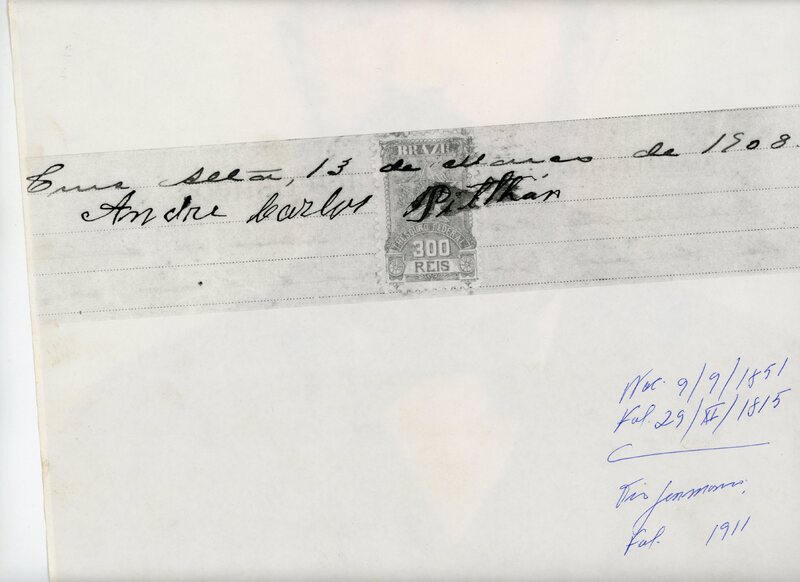 Cruz Alta, 13 de Março de 1908.
Andre Carlos Pilthan
BRAZIL
THESOURO FEDERAL
300
REIS
Nac. 9/9/1851
Fal. 29/XI/1815
Tio
Fal. 1911